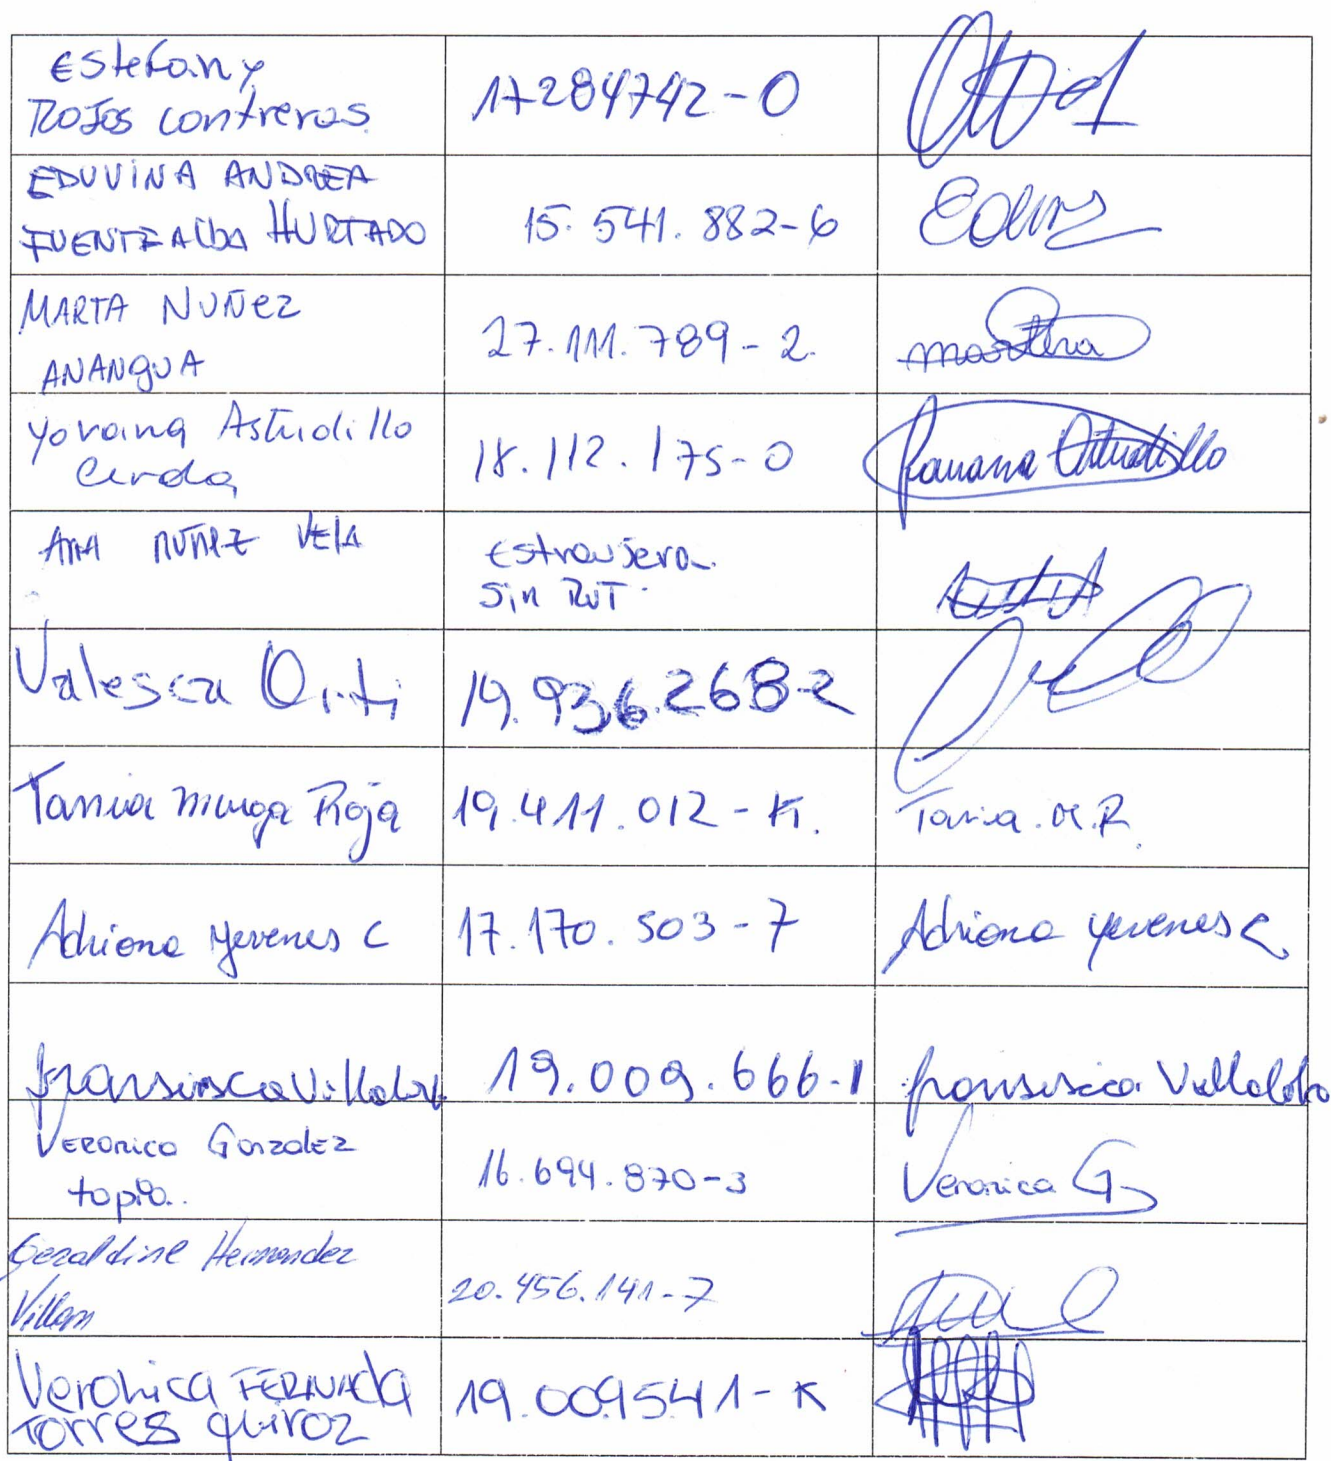 Estefany
Rojas contreras
17284742-0
EDUVINA ANDREA
FUENTEALBA HURTADO
15.541.882-6
MARTA NUÑEZ
ANANGUA
27.111.789-2.
martha
Yovana Astudillo
Cerda
18.112.175-0
Astudillo
ANA NUÑEZ VELA
Estranjera
Sin RUT.
Valesca
19.936.268-2
Tania Murga Roja
19.411.012-K.
Tania.M.R.
Adriana Yevenes C
17.170.503-7
Adriana Yevenes C
fransisca Villalob
19.009.666-1
fransisca Villalobo
Veronica Gonzalez
tapia..
16.694.870-3
Veronica G
Geraldine Hernandez
20.456.141-7
Veronica FERNADA
Torres quiroz
19.009541-K